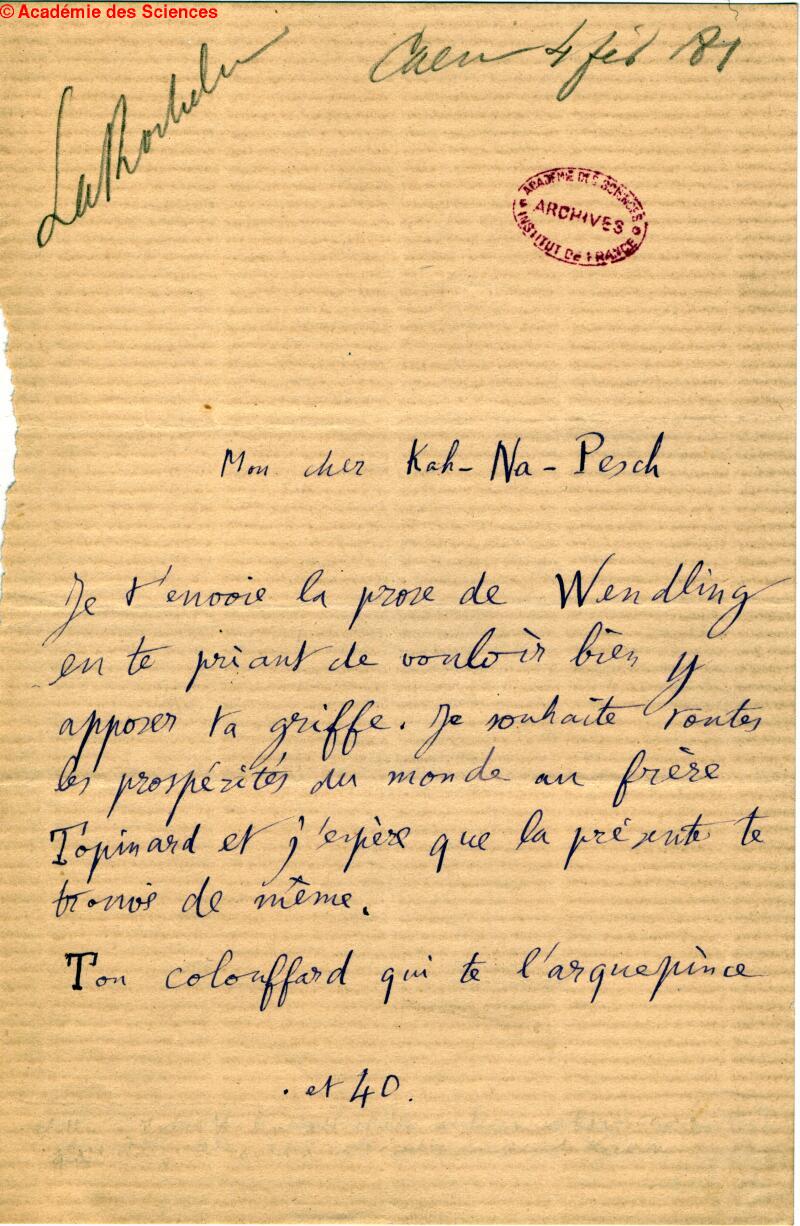 © Académie des Sciences
Caen 4 fév 81
ACADÉMIE DES SCIENCES
ARCHIVES
INSTITUT DE FRANCE
Mon cher Kah-Na-Pesch
Je t'envoie la prose de Wendling
en te priant de vouloir bien y
apposer ta griffe. Je souhaite toutes
les prospérités du monde au frère
Topinard et j'espère que la présente te
trouve de même.
Ton colouffard qui te l'arquepince
. et 40.